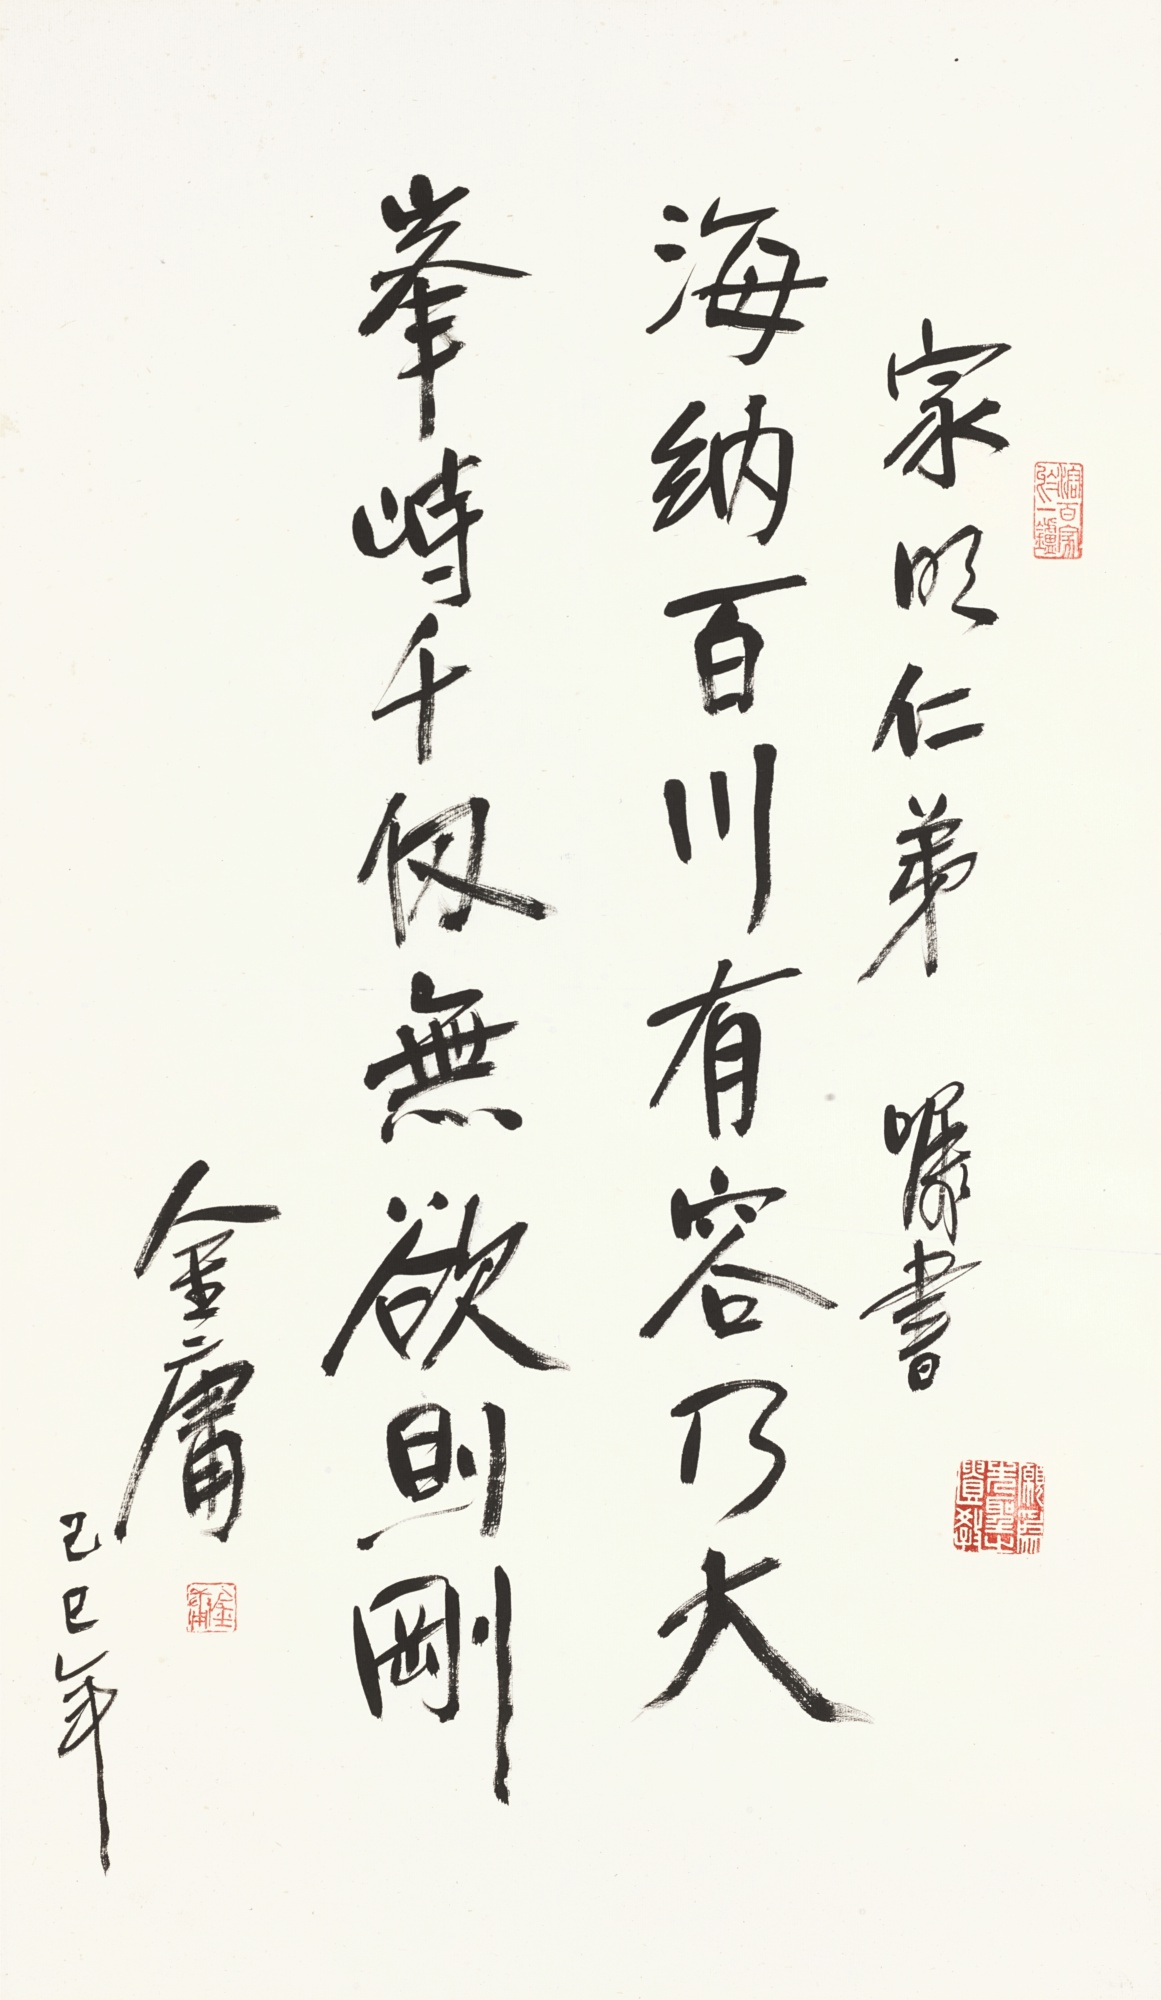 家明仁弟 囑書
海納百川有容乃大
峯峙千仞無欲則剛
金庸
己巳年
金庸